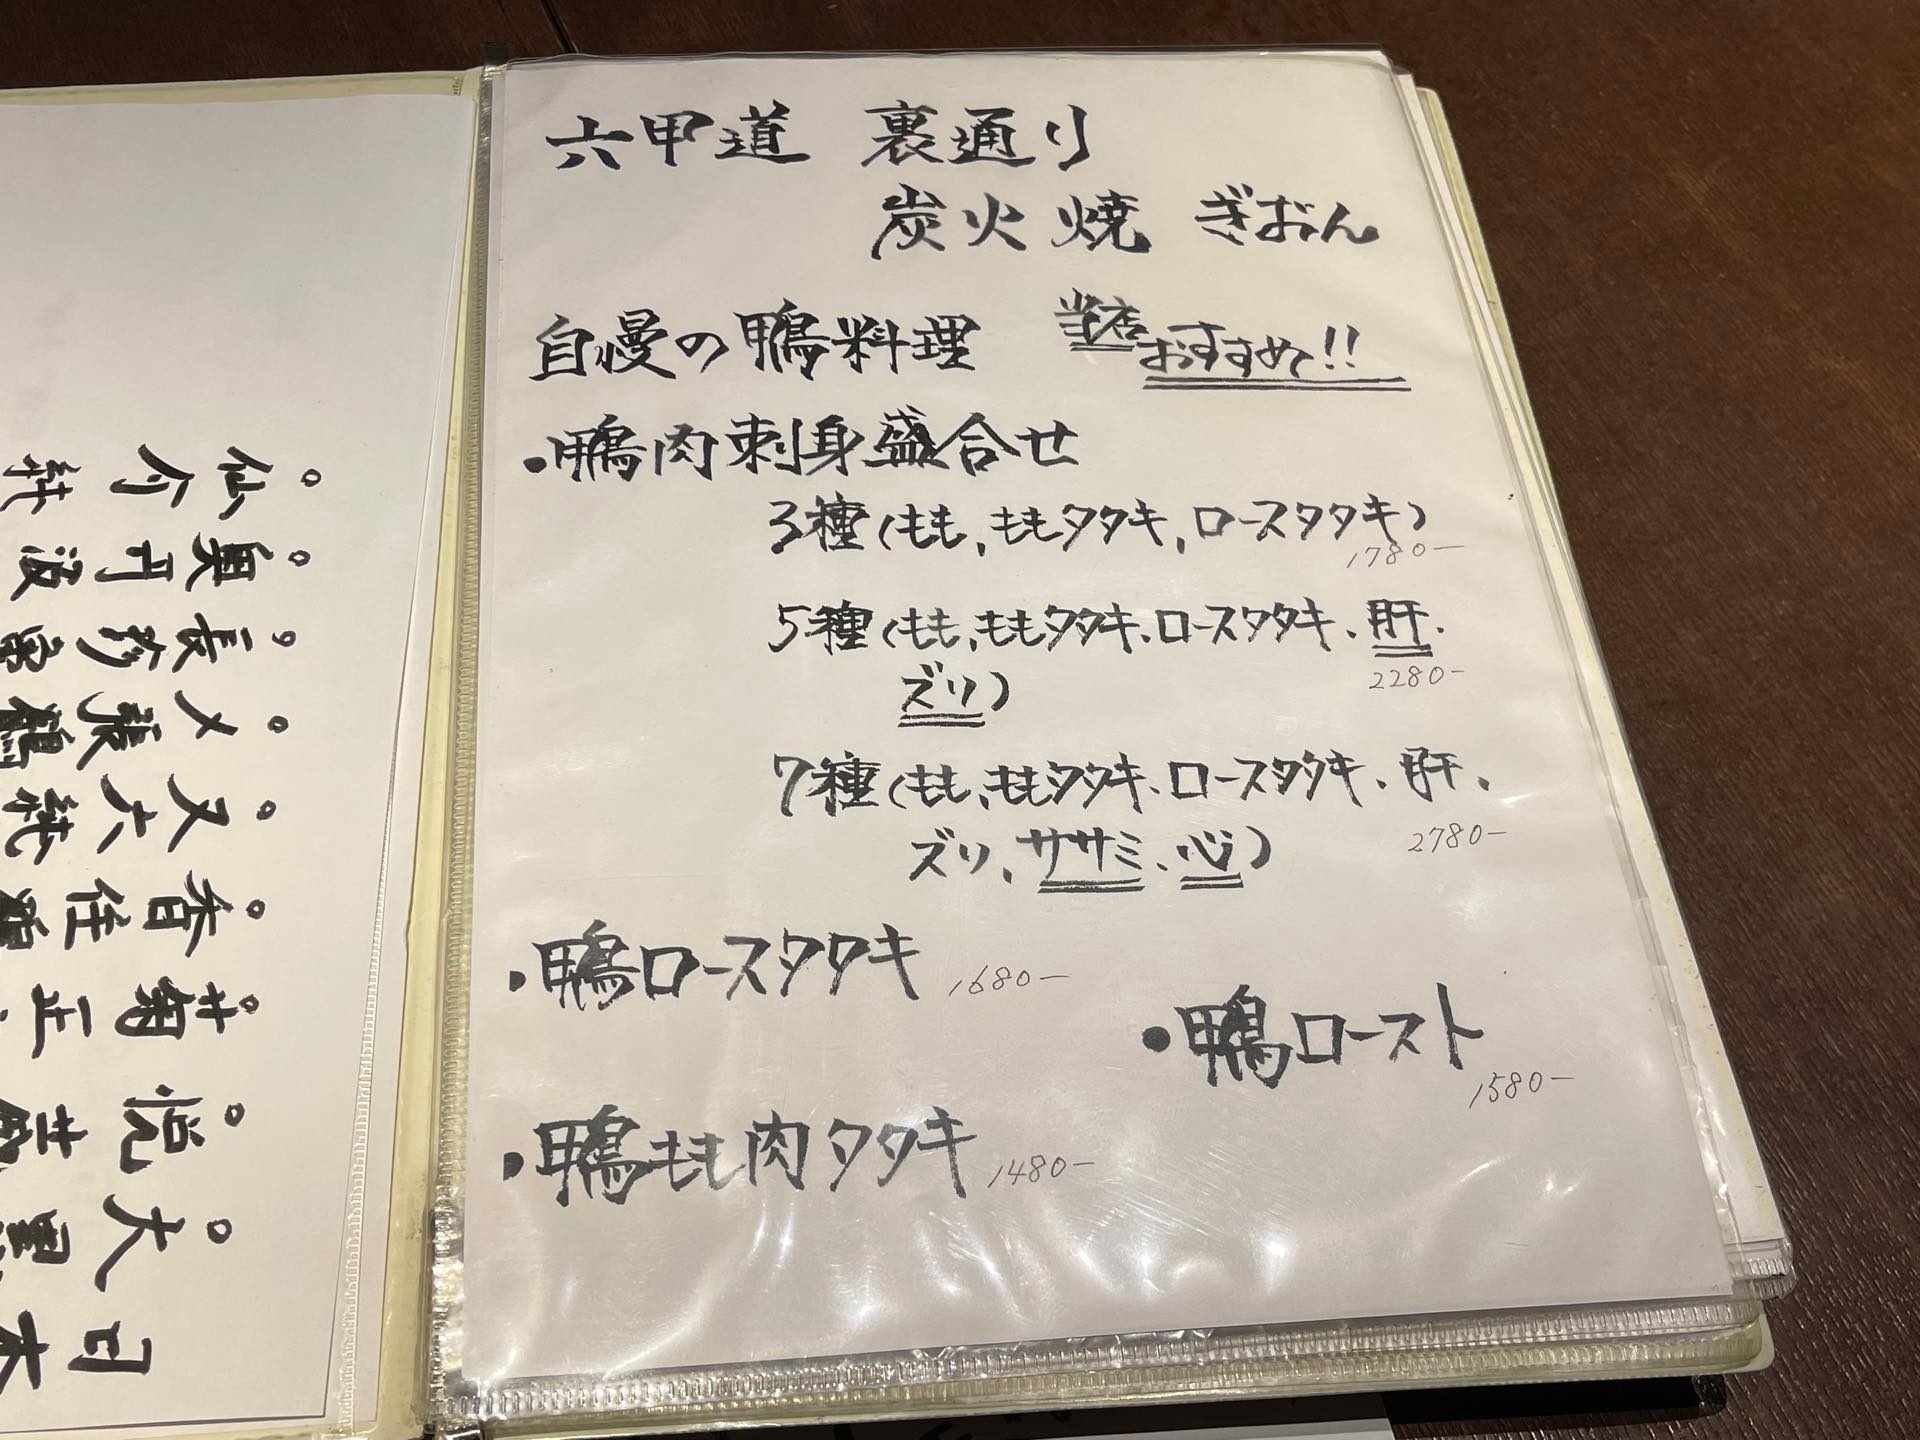 六甲道 裏通り
炭火焼 ぎおん
自慢の鴨料理 当店おすすめ!!
・鴨肉刺身盛合せ
3種(もも、ももタタキ、ロースタタキ)
1780-
5種(もも、ももタタキ、ロースタタキ、肝、
ズリ)
2280-
7種(もも、ももタタキ、ロースタタキ、肝、
ズリ、ササミ、心)
2780-
・鴨ロースタタキ 1680-
・鴨ロースト
1580-
・鴨もも肉タタキ 1480-
日本
。大黒
。悦
。菊正
。香住
。又六
。〆張鶴
。長珍
。奥丹波
。仙介